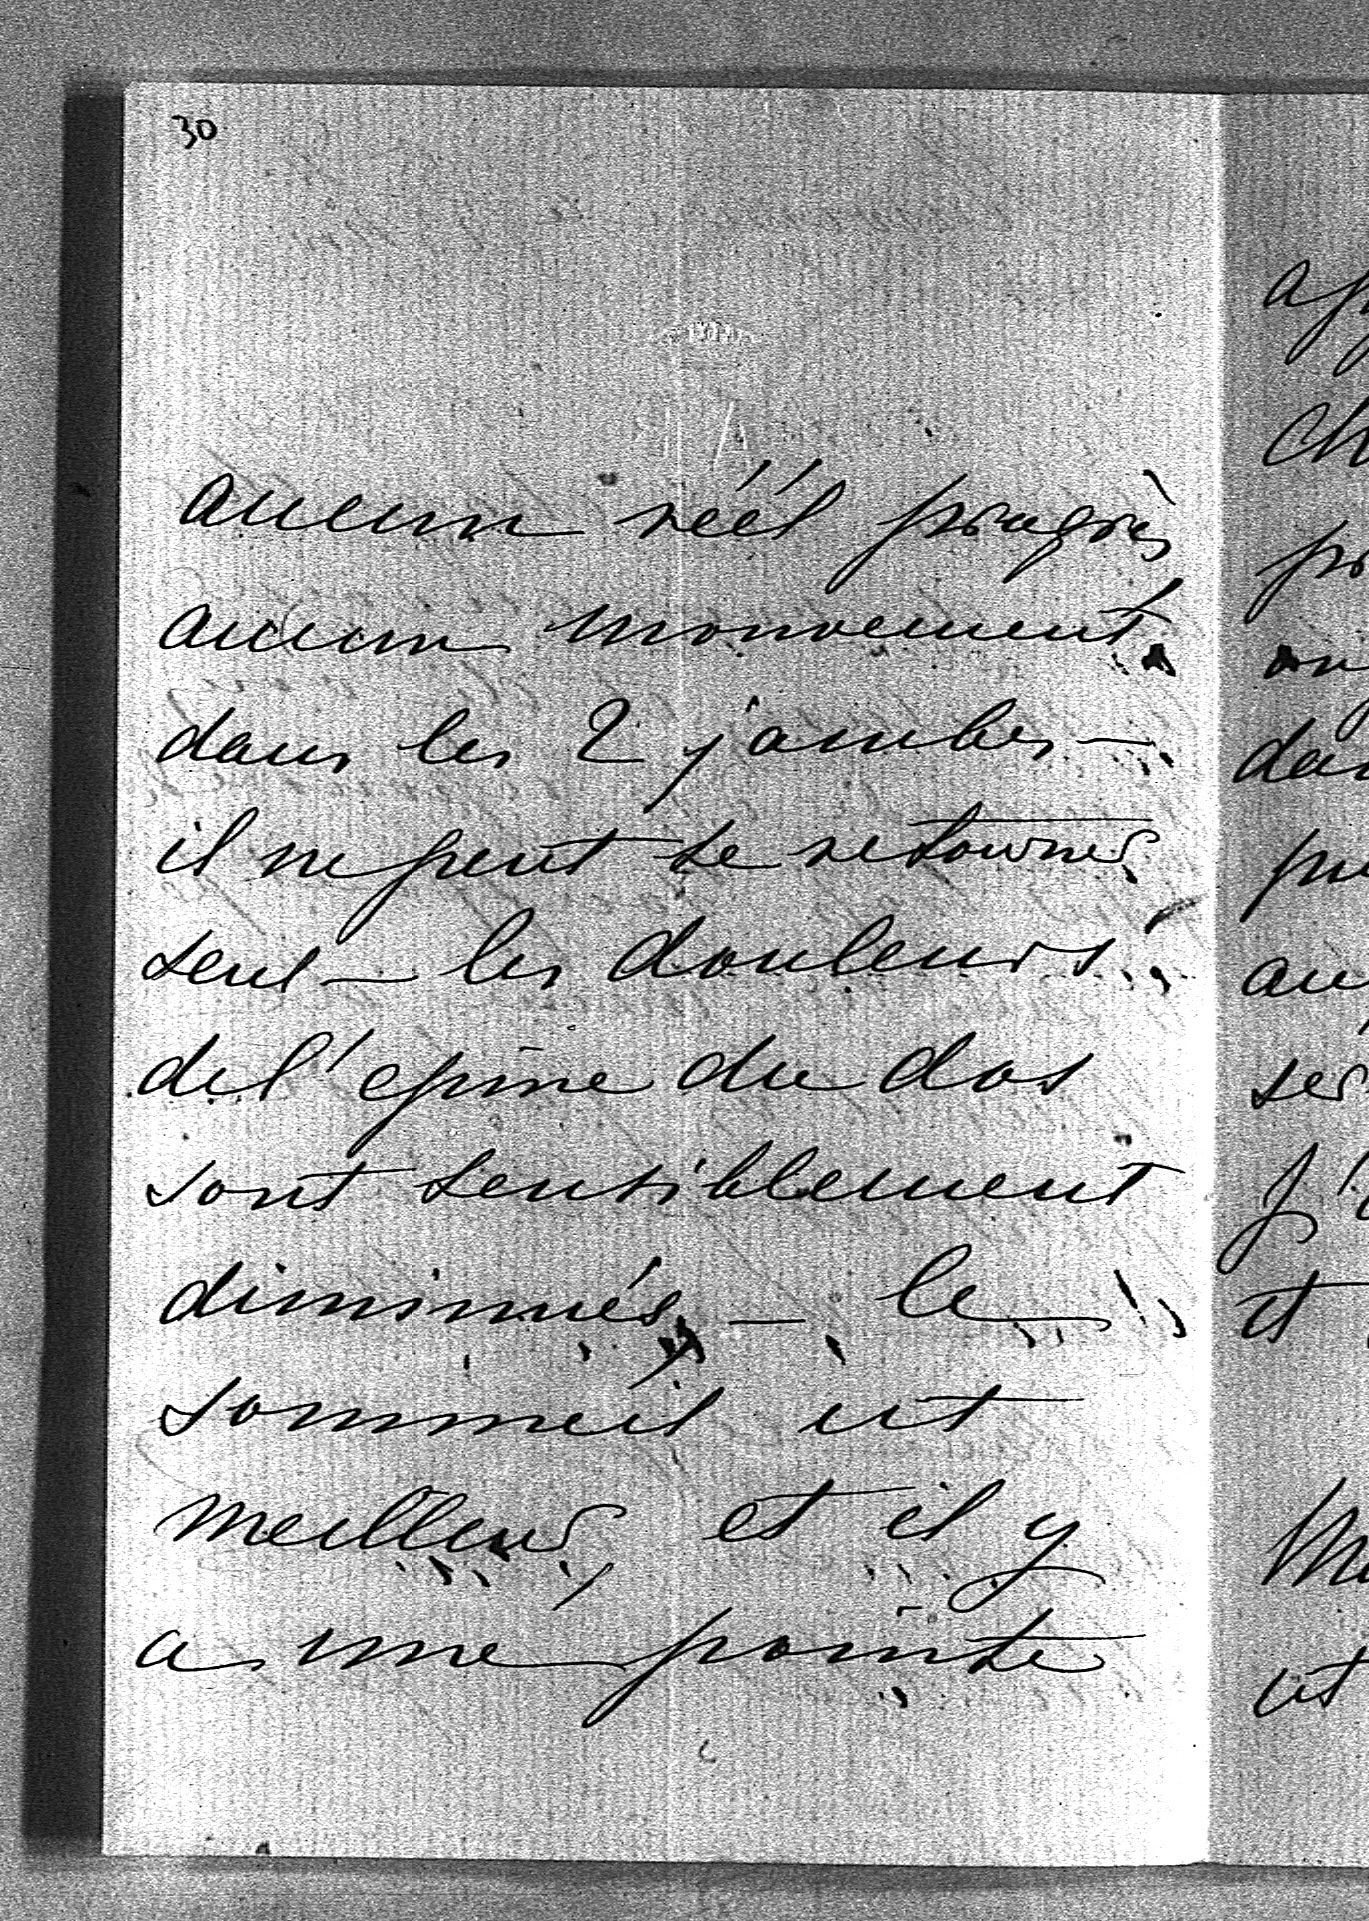 30
aucun réél progrès
aucun mouvement
dans les 2 jambes —
il ne peut se retourner
seul — les douleurs
de l'épine du dos
sont sensiblement
diminués — le
sommeil est
meilleur, et il y
a une pointe